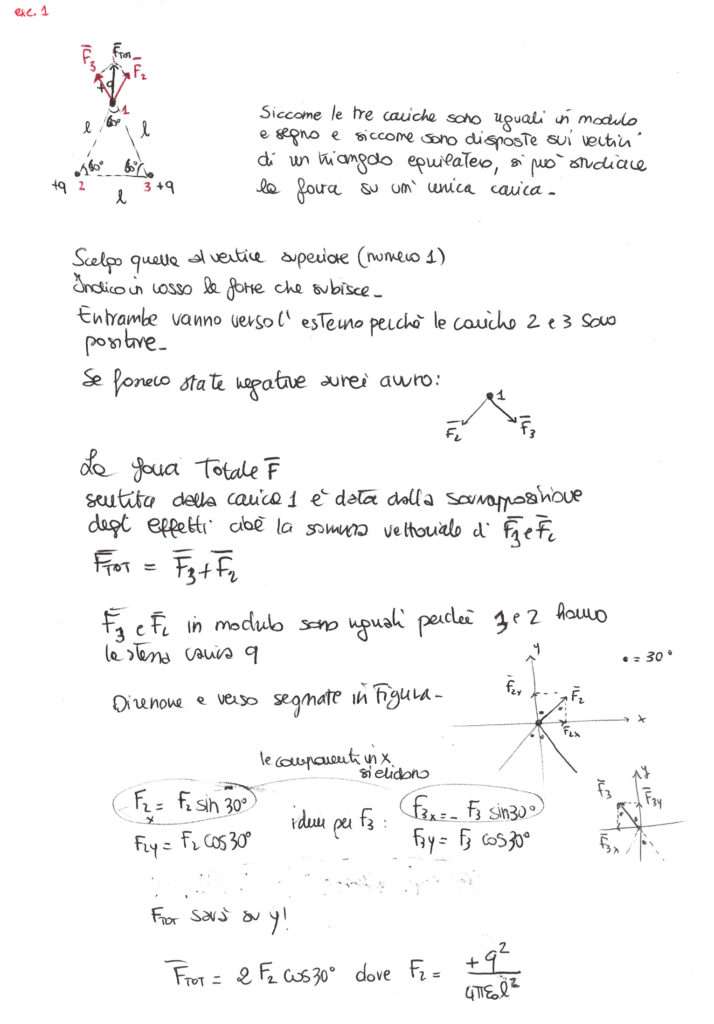 exc. 1
F̄TOT
F̄3
F̄2
+q
1
60°
l
l
60°
60°
+q 2
3 +q
l
Siccome le tre cariche sono uguali in modulo
e segno e siccome sono disposte sui vertici
di un triangolo equilatero, si può studiare
la forza su un' unica carica_
Scelgo quella al vertice superiore (numero 1)
Indico in rosso le forze che subisce_
Entrambe vanno verso l' esterno perchè le cariche 2 e 3 sono
positive_
Se fossero state negative avrei avuto:
1
F̄2
F̄3
La forza Totale F̄
sentita dalla carica 1 è data dalla sovrapposizione
degli effetti cioè la somma vettoriale di F̄3 e F̄2
F̄TOT = F̄3 + F̄2
F̄3 e F̄2 in modulo sono uguali perchè 3 e 2 hanno
la stessa carica q
y
• = 30°
F̄2y
F̄2
x
F2x
Direzione e verso segnate in Figura_
le componenti in x
si elidono
F2x = F2 sin 30°
idem per F3 :
F3x = - F3 sin 30°
F2y = F2 cos 30°
F3y = F3 cos 30°
y
F̄3
F̄3y
F̄3x
x
FTOT sarà su y!
F̄TOT = 2 F2 cos 30° dove F2 = +q² / 4πε₀l²